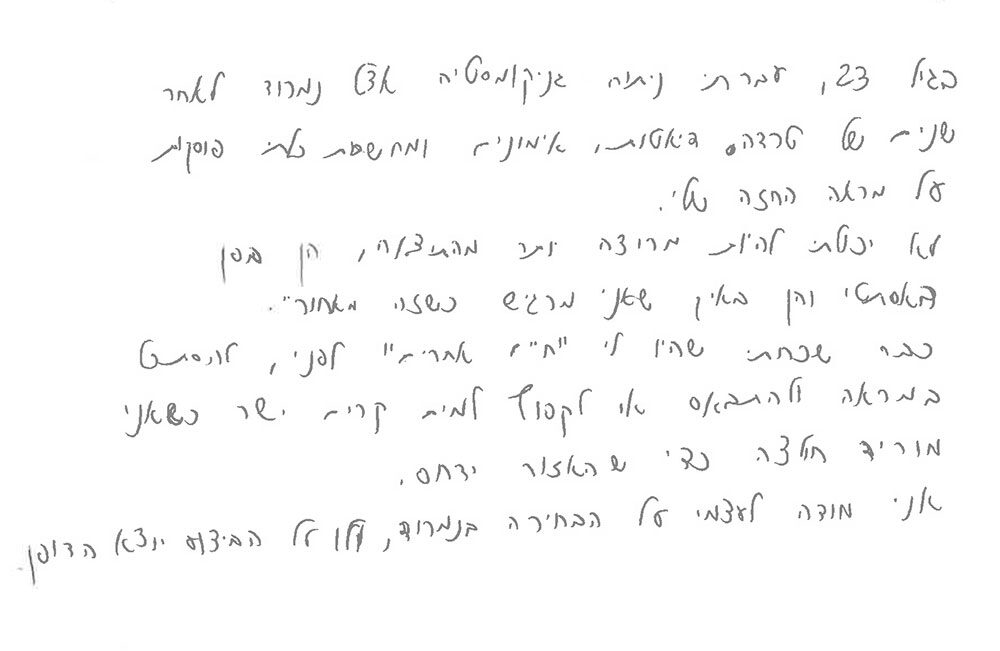 בגיל 23, עברתי ניתוח גניקומסטיה אצל נמרוד לאחר
שנים של טרדה, דיאטות, אימונים ומחשבות בלתי פוסקות
על מראה החזה שלי.
לא יכולתי להיות מרוצה יותר מהתוצאה, הן בפן
האסתטי והן באיך שאני מרגיש כשזה מאחורי".
כבר שכחתי שהיו לי "חיים אחרים" לפני, להסתכל
במראה ולהתבאס או לקפוץ למים קרים ישר כשאני
מוריד חולצה כדי שהאזור
אני מודה לעצמי על הבחירה בנמרוד, ולו על הביצוע יוצא הדופן.